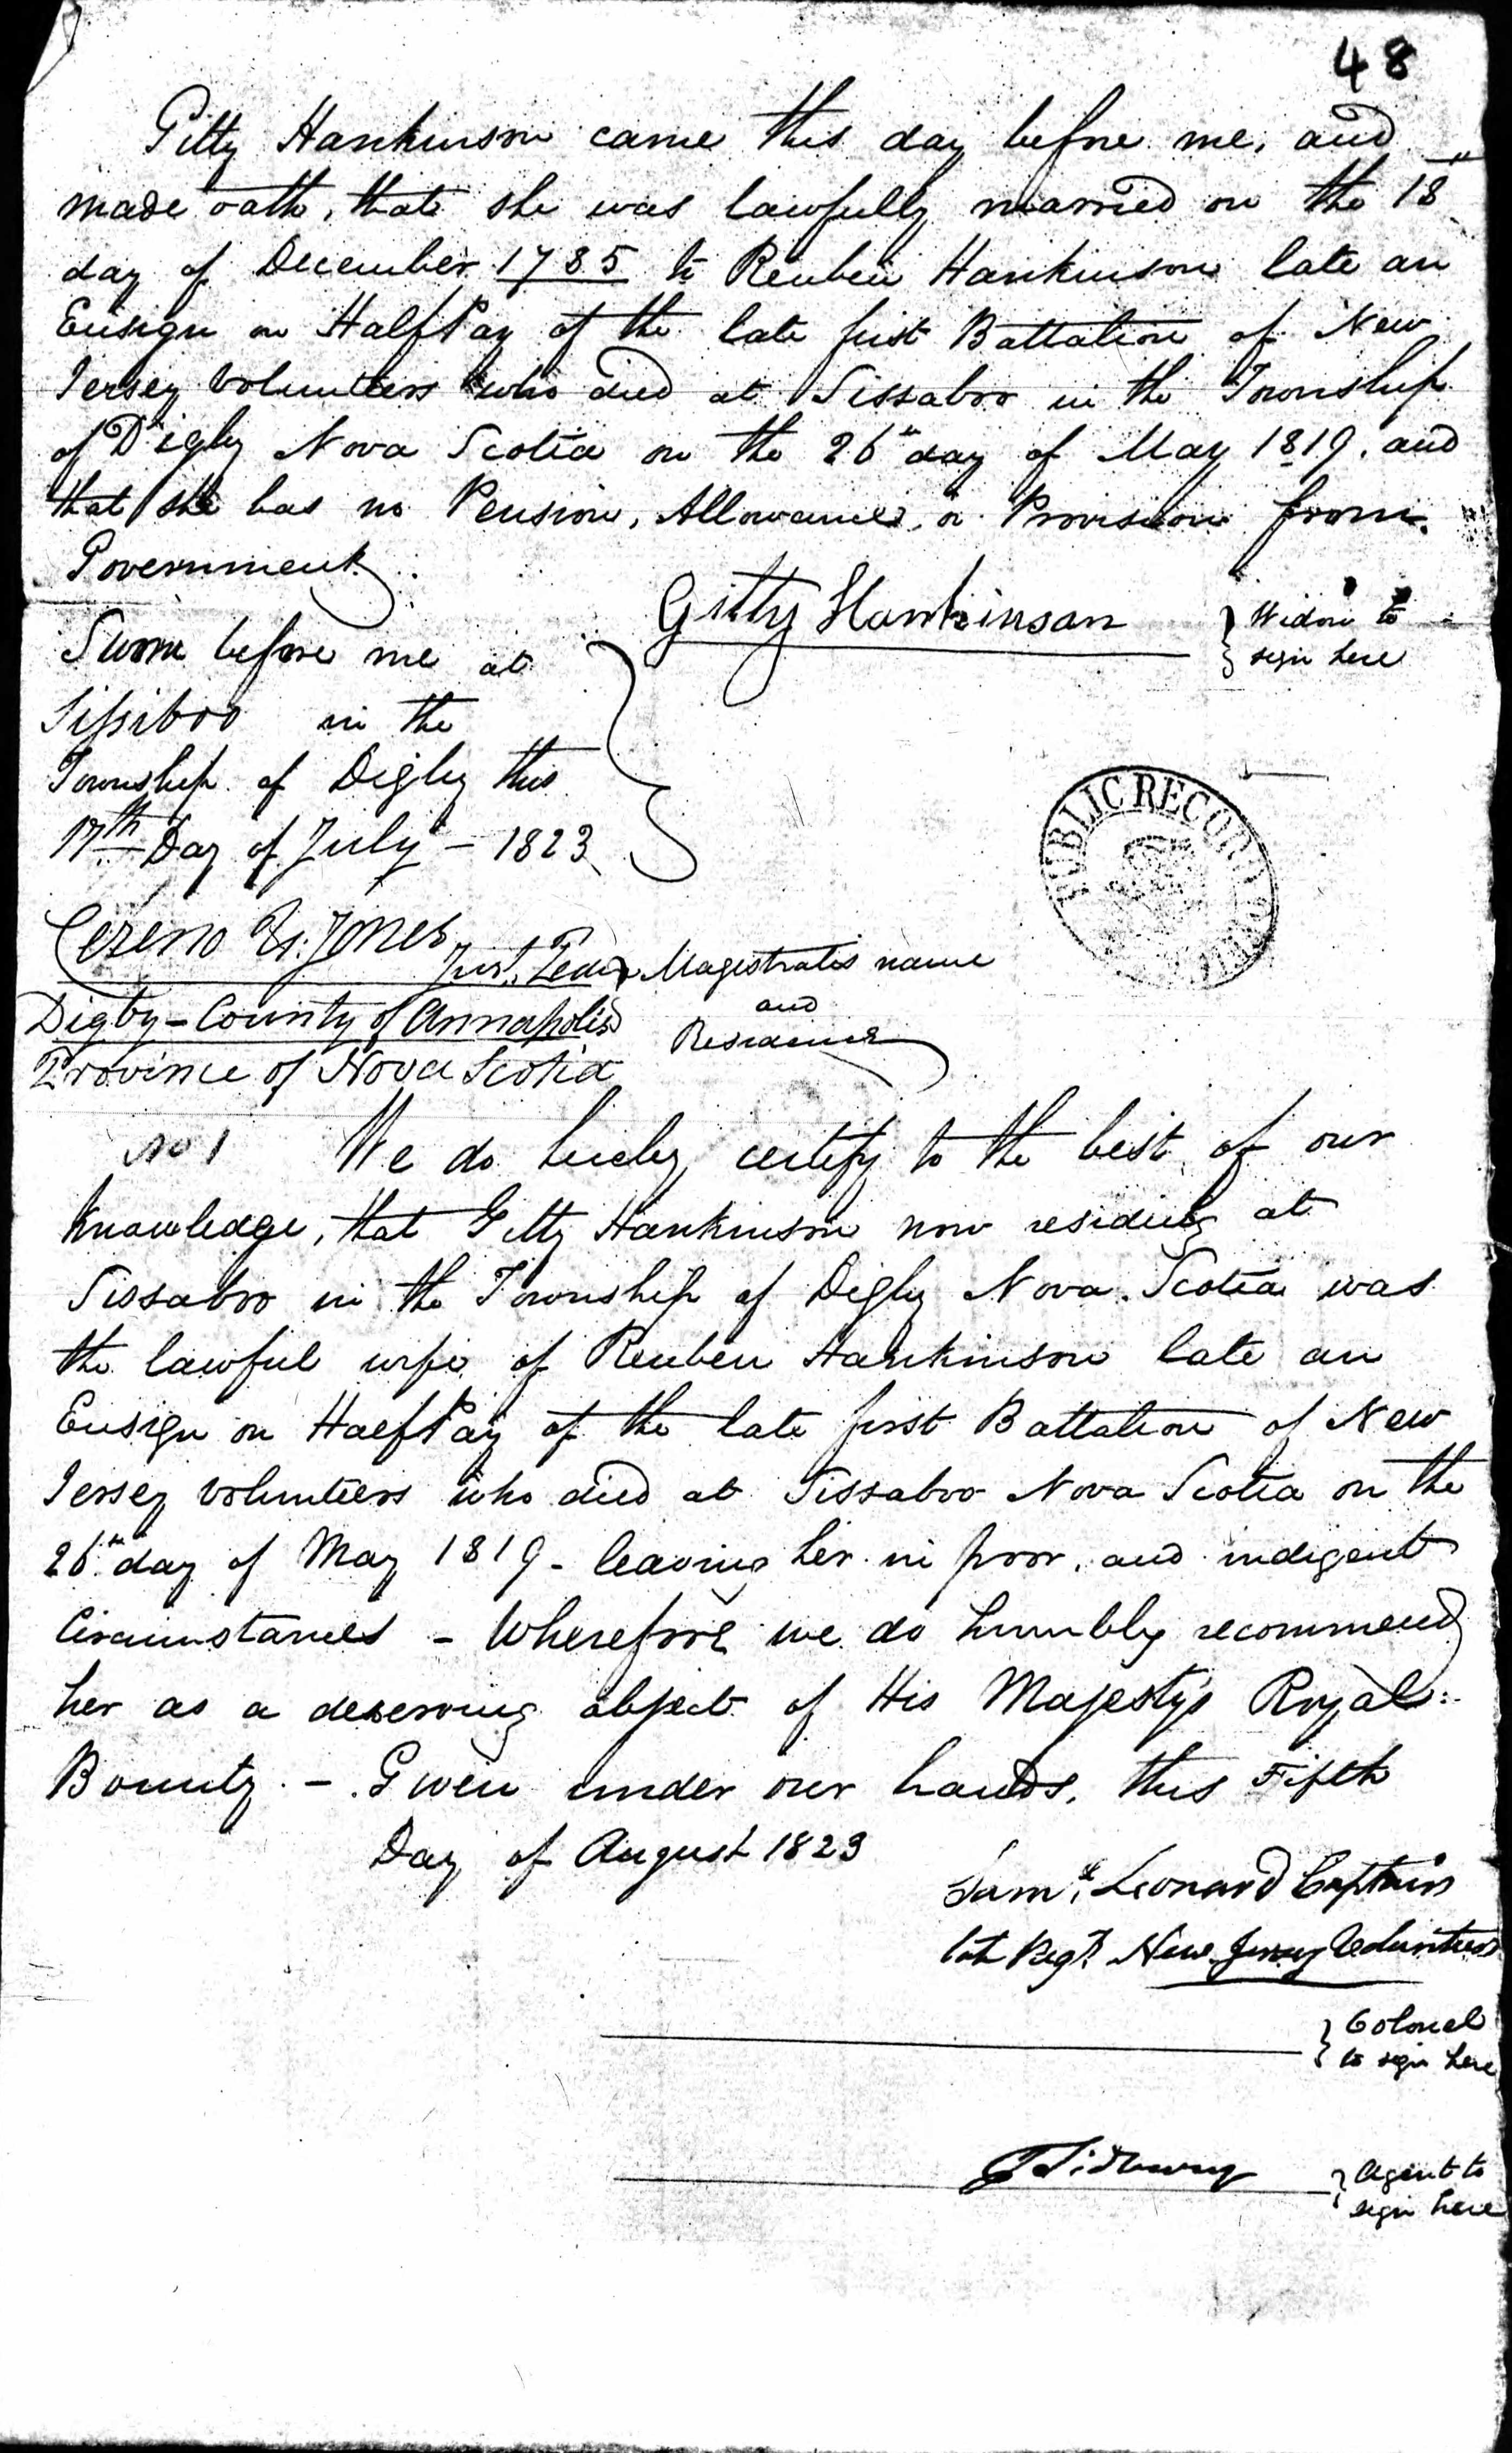 48
Gitty Hankinson came this day before me, and
made oath, that she was lawfully married on the 18th
day of December 1785 to Reuben Hankinson late an
Ensign on Half Pay of the late first Battalion of New
Jersey Volunteers who died at Sissaboo in the Township
of Digby Nova Scotia on the 26th day of May 1819. and
that she has no Pension, Allowance, or Provision from
Government.
Gitty Hankinson
Widow to
sign here
Sworn before me at
Sissiboo in the
Township of Digby this
17th Day of July - 1823
Cereno U. Jones
Just. Peace
Magistrates name
and
Residence
Digby - County of Annapolis
Province of Nova Scotia
PUBLIC RECORD
No 1 We do hereby certify to the best of our
knowledge, that Gitty Hankinson now residing at
Sissaboo in the Township of Digby Nova Scotia was
the lawful wife of Reuben Hankinson late an
Ensign on Half Pay of the late first Battalion of New
Jersey Volunteers who died at Sissaboo Nova Scotia on the
26th day of May 1819 - leaving her in poor, and indigent
Circumstances - Wherefore we do humbly recommend
her as a deserving object of His Majesty's Royal
Bounty. - Given under our hands, this Fifth
Day of August 1823
Saml. Leonard Captain
late Regt. New Jersey Volunteers
Colonel
to sign here
Agent to
sign here